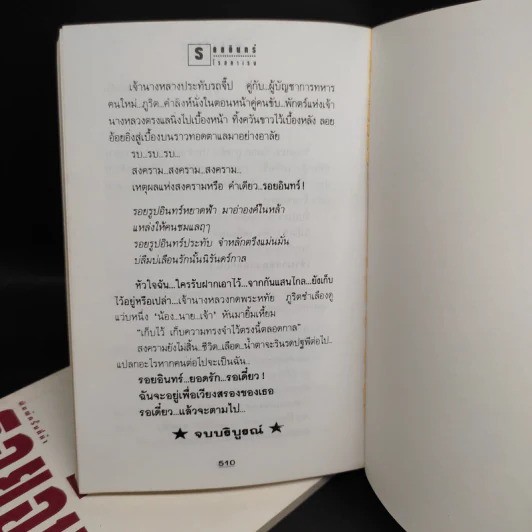 ร อยอินทร์
โรสลาเรน
เจ้านางหลวงประทับรถจี๊ป คู่กับ..ผู้บัญชาการทหาร
คนใหม่..ภูริต..คำสิงห์นั่งในตอนหน้าคู่คนขับ..พักตร์แห่งเจ้า
นางหลวงตรงแลนิ่งไปเบื้องหน้า ทิ้งควันขาวไว้เบื้องหลัง ลอย
อ้อยอิ่งสู่เบื้องบนราวทอดตาแลมาอย่างอาลัย
รบ..รบ..รบ..
สงคราม..สงคราม..สงคราม..
เหตุผลแห่งสงครามหรือ คำเดียว..รอยอินทร์!
รอยรูปอินทร์หยาดฟ้า มาอ่าองค์ในหล้า
แหล่งให้คนชมแลฤๅ
รอยรูปอินทร์ประทับ จำหลักตรึงแม่นมั่น
ปลิมปเลือนรักนั้นนิรันดร์กาล
หัวใจฉัน...ใครรับฝากเอาไว้...จากกันแสนไกล...ยังเก็บ
ไว้อยู่หรือเปล่า...เจ้านางหลวงกดพระหทัย ภูริตชำเลืองดู
แว่บหนึ่ง 'น้อง..นาย..เจ้า' หันมายิ้มเหี้ยม
"เก็บไว้ เก็บความทรงจำไว้ตรงนี้ตลอดกาล"
สงครามยังไม่สิ้น..ชีวิต..เลือด..น้ำตาจะรินรดปฐพีต่อไป..
แปลกอะไรหากคนต่อไปจะเป็นฉัน..
รอยอินทร์...ยอดรัก...รอเดี๋ยว!
ฉันจะอยู่เพื่อเวียงสรองของเธอ
รอเดี๋ยว...แล้วจะตามไป...
★ จบบริบูรณ์ ★
510